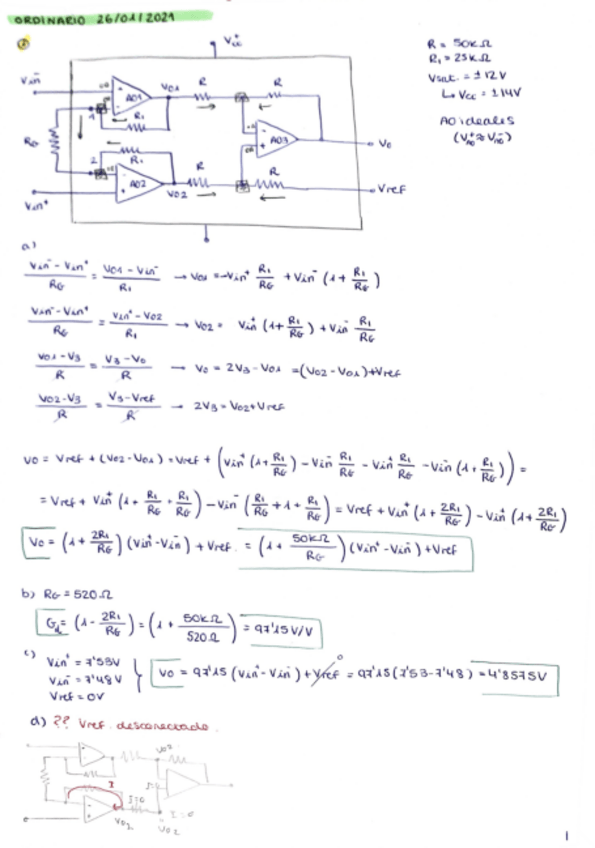 ORDINARIO 26/01/2021
2
Vcc+
R = 50kΩ
R1 = 25kΩ
Vsat. = ±12V
↳ Vcc = ±14V
AO ideales
(VAO+ ≈ VAO-)
Vin-
AO1
VO1
R
R
1
R1
RG
AO3
Vo
2
R1
R
R
AO2
VO2
Vref
Vin+
a)
(Vin- - Vin+)/RG = (VO1 - Vin-)/R1 → VO1 = -Vin+ R1/RG + Vin- (1 + R1/RG)
(Vin- - Vin+)/RG = (Vin+ - VO2)/R1 → VO2 = Vin+ (1 + R1/RG) + Vin- R1/RG
(VO1 - V3)/R = (V3 - Vo)/R → Vo = 2V3 - VO1 = (VO2 - VO1) + Vref
(VO2 - V3)/R = (V3 - Vref)/R → 2V3 = VO2 + Vref
Vo = Vref + (VO2 - VO1) = Vref + (Vin+ (1 + R1/RG) - Vin- R1/RG - Vin+ R1/RG - Vin- (1 + R1/RG)) =
= Vref + Vin+ (1 + R1/RG + R1/RG) - Vin- (R1/RG + 1 + R1/RG) = Vref + Vin+ (1 + 2R1/RG) - Vin- (1 + 2R1/RG)
Vo = (1 + 2R1/RG) (Vin+ - Vin-) + Vref = (1 + 50kΩ/RG) (Vin+ - Vin-) + Vref
b) RG = 520Ω
Gd = (1 - 2R1/RG) = (1 + 50kΩ/520Ω) = 97'15 V/V
c) Vin+ = 7'53V
Vin- = 7'48V
Vref = 0V
Vo = 97'15 (Vin+ - Vin-) + Vref 0 = 97'15 (7'53 - 7'48) = 4'8575V
d) ?? Vref desconectado.
VO2
I
I=0
VO2
I=0
VO2
1